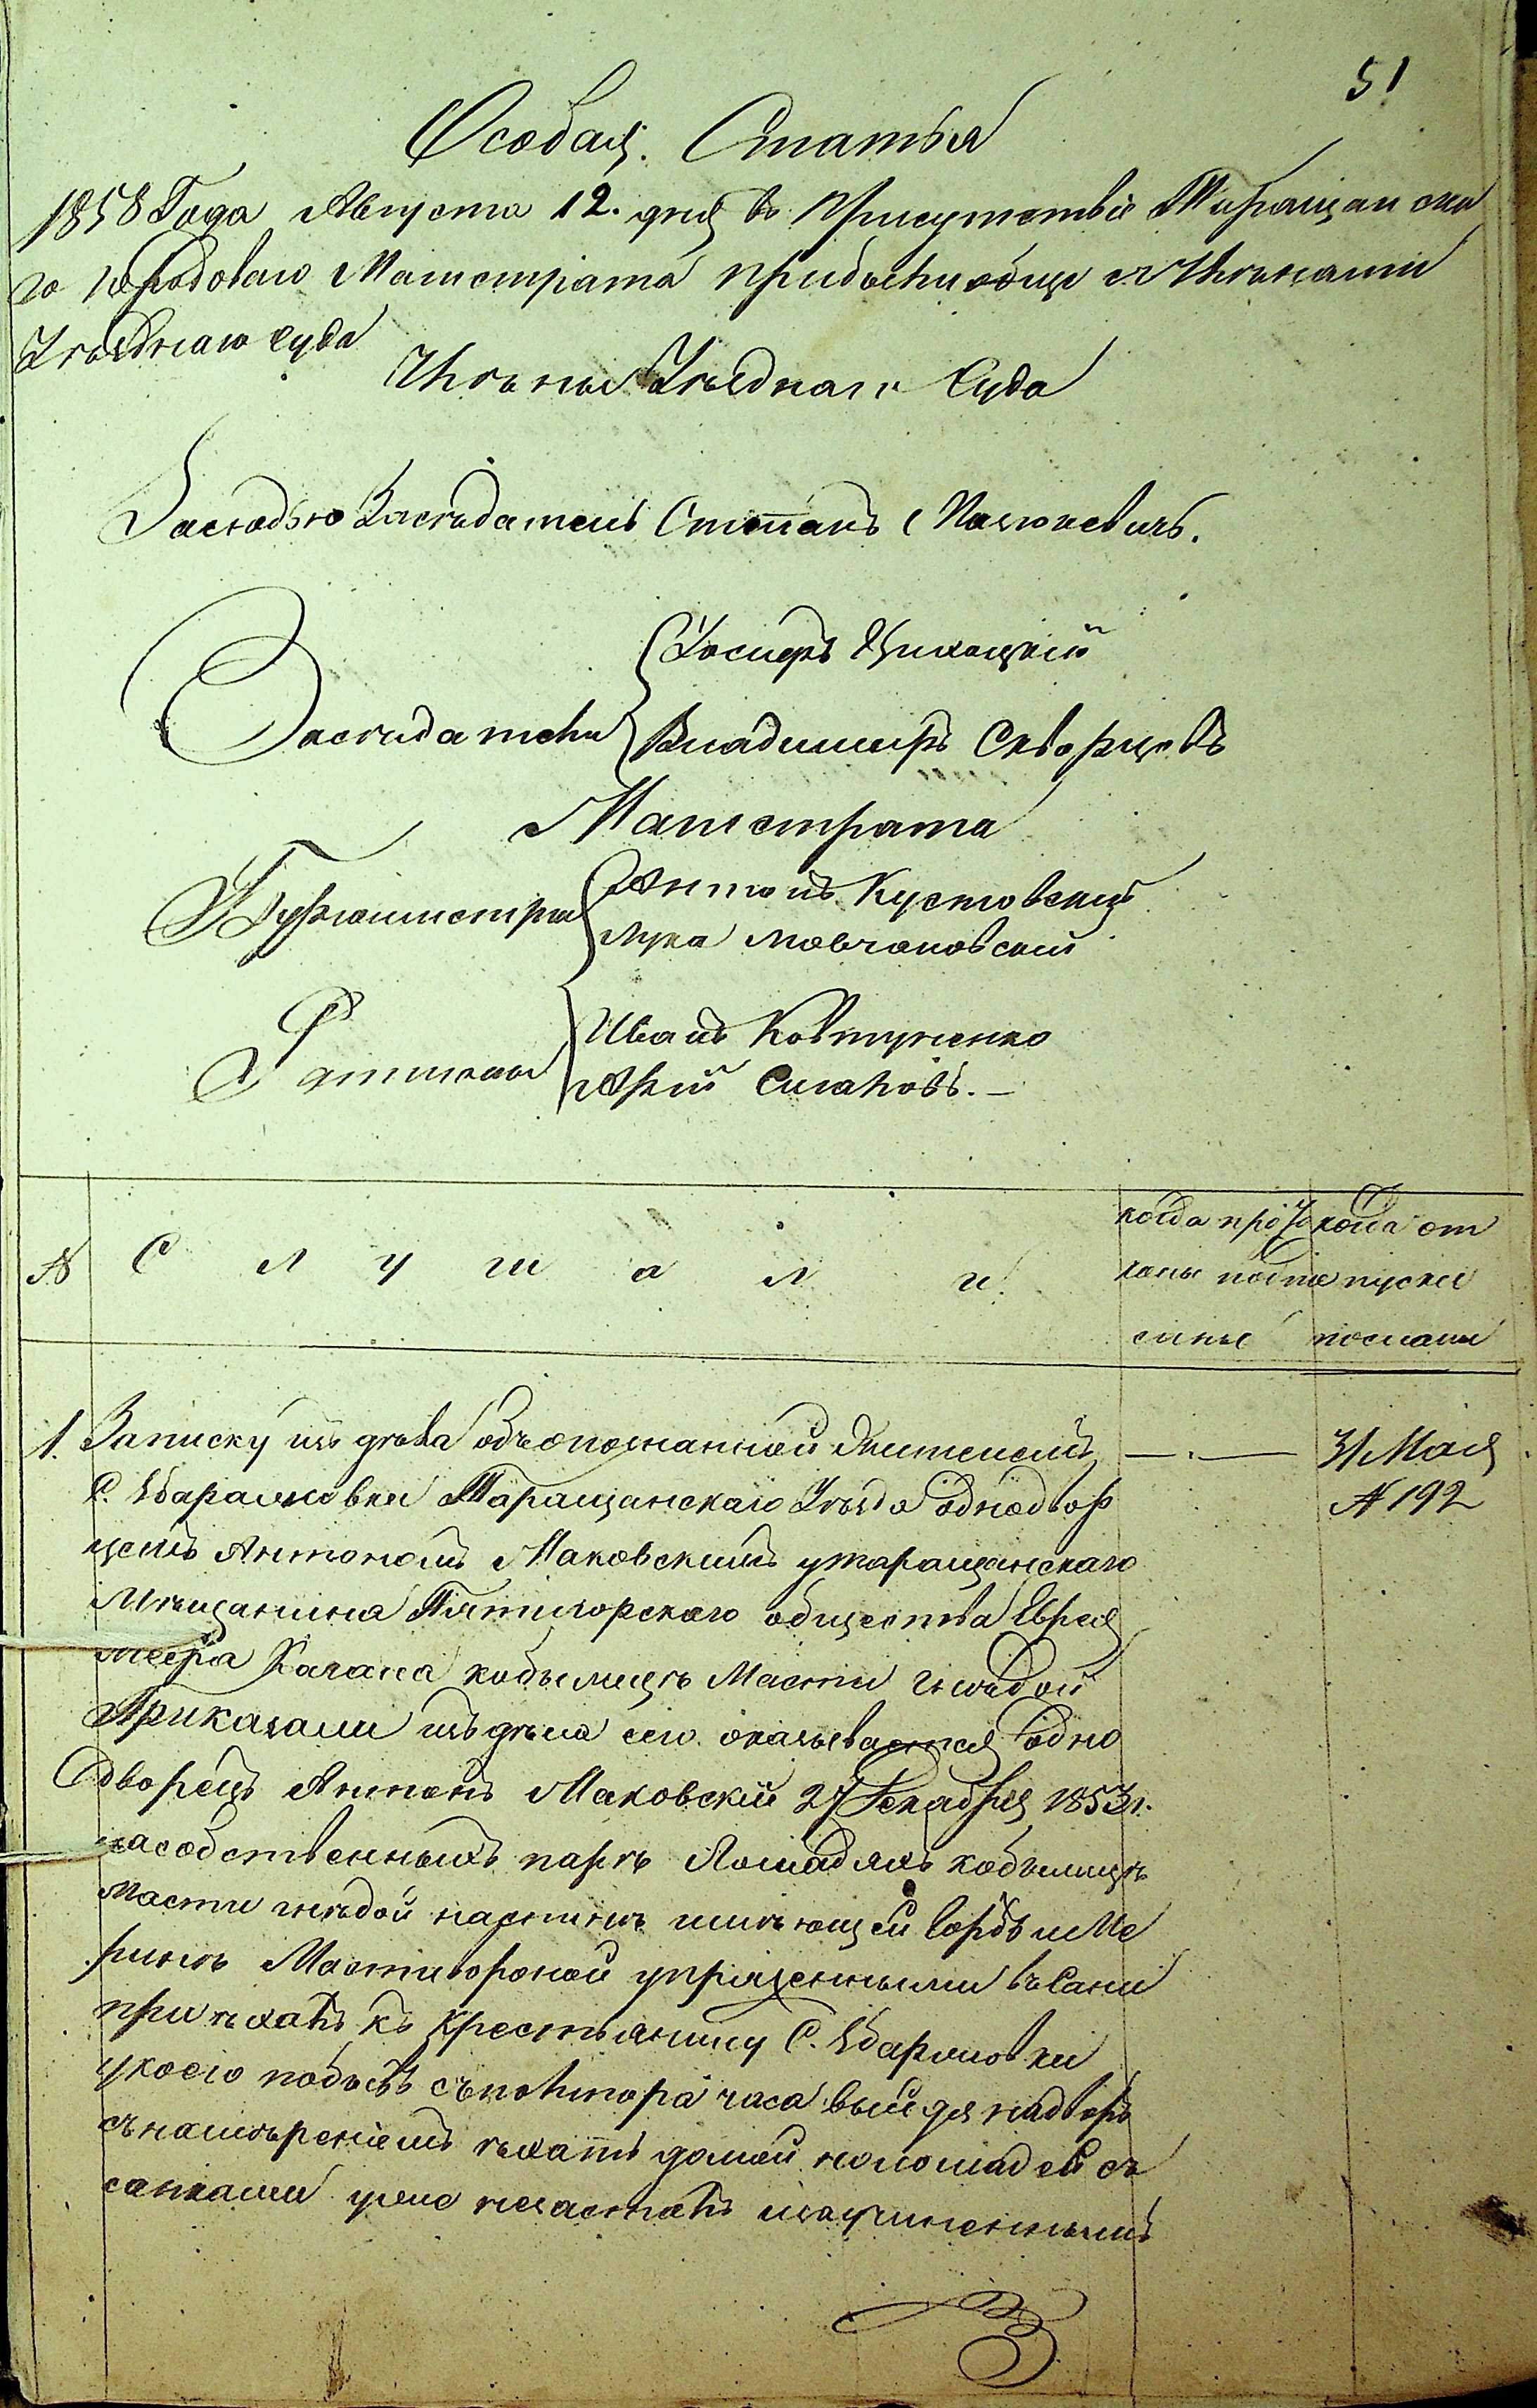 51
Особая Статья
1858 Года Августа 12. дня въ Присутствіе Таращанска
го городоваго Магистрата прибыли обще съ Членами
Уѣзднаго суда
Члены Уѣзднаго Суда
Засѣдатель Степанъ
Засѣдатели
Іосифъ
Владимиръ Скворцовъ
Магистрата
Бургомистры
Антонъ Кустовскій
Лука Мовчановскій
Ратманы
Иванъ Ковтуненко
Сигаловъ. —
№ С л у ш а л и.
когда
когда от
пуски
посланы
1. Записку изъ дѣла объ опознанной Жителемъ
С. Таращанскаго Уѣзда однодвор
цемъ Антономъ Маковскимъ у таращанскаго
Мѣщанина Пятигорскаго общества Еврея
Меера Кагана кобылицѣ Масти гнѣдой
Приказали изъ дѣла сего оказывается одно
дворецъ Антонъ Маковскій 27 Декабря 1853 г.
на собственныхъ парѣ Лошадяхъ кобылицѣ
масти гнѣдой на спинѣ имѣющей горбъ и Ме
ринѣ Масти вороной упряженными въ Сани
приѣхалъ къ Крестьянину С.
у коего побывъ съ полтора часа выйдя на дворъ
съ намѣреніемъ ѣхать домой но лошадей съ
санками уже незасталъ изъ учиненнымъ
31 Мая
№ 192